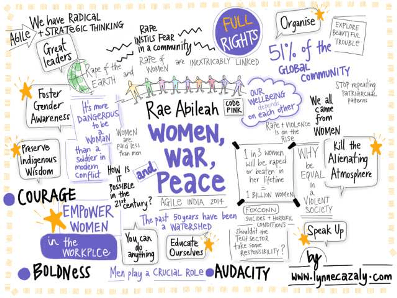 Agile
We have RADICAL
+ STRATEGIC THINKING
Great
leaders
RAPE
INSTILS FEAR
in a community
FULL
RIGHTS
Organise
EXPLORE
BEAUTIFUL
TROUBLE
Rape of the
EARTH
and
RAPE of
WOMEN
are INEXTRICABLY LINKED
51% of the
GLOBAL
COMMUNITY
Foster
Gender
Awareness
It's more
DANGEROUS
to be a
WOMAN
than a
SOLDIER in
modern
conflict
WOMEN
ARE
PAID LESS
THAN
MEN
Rae Abileah
CODE
PINK
WOMEN,
WAR,
and
Peace
AGILE INDIA 2014
OUR
WELLBEING
depends
on each other
Rape + VIOLENCE
IS ON THE
RISE
STOP REPEATING
PATRIARCHAL
PATTERNS
We all
came
from
WOMEN
Preserve
Indigenous
Wisdom
HOW is
IT
POSSIBLE
IN THE
21st century?
1 in 3 WOMEN
will be raped
or beaten in
their lifetime
=
1 BILLION WOMEN
WHY
BE
EQUAL
in a
VIOLENT
SOCIETY
Kill the
Alienating
Atmosphere
COURAGE
EMPOWER
WOMEN
in the
WORKPLCE
The past 50 years have been
a WATERSHED
FOXCONN
SUICIDES + HORRIBLE
CONDITIONS
Shouldn't the
TECH SECTOR
take some
RESPONSIBILITY?
Speak Up
You can
do
anything
Educate
Ourselves
BOLDNess
Men play a CRUCIAL ROLE
AUDACITY
by
www.lynnecazaly.com